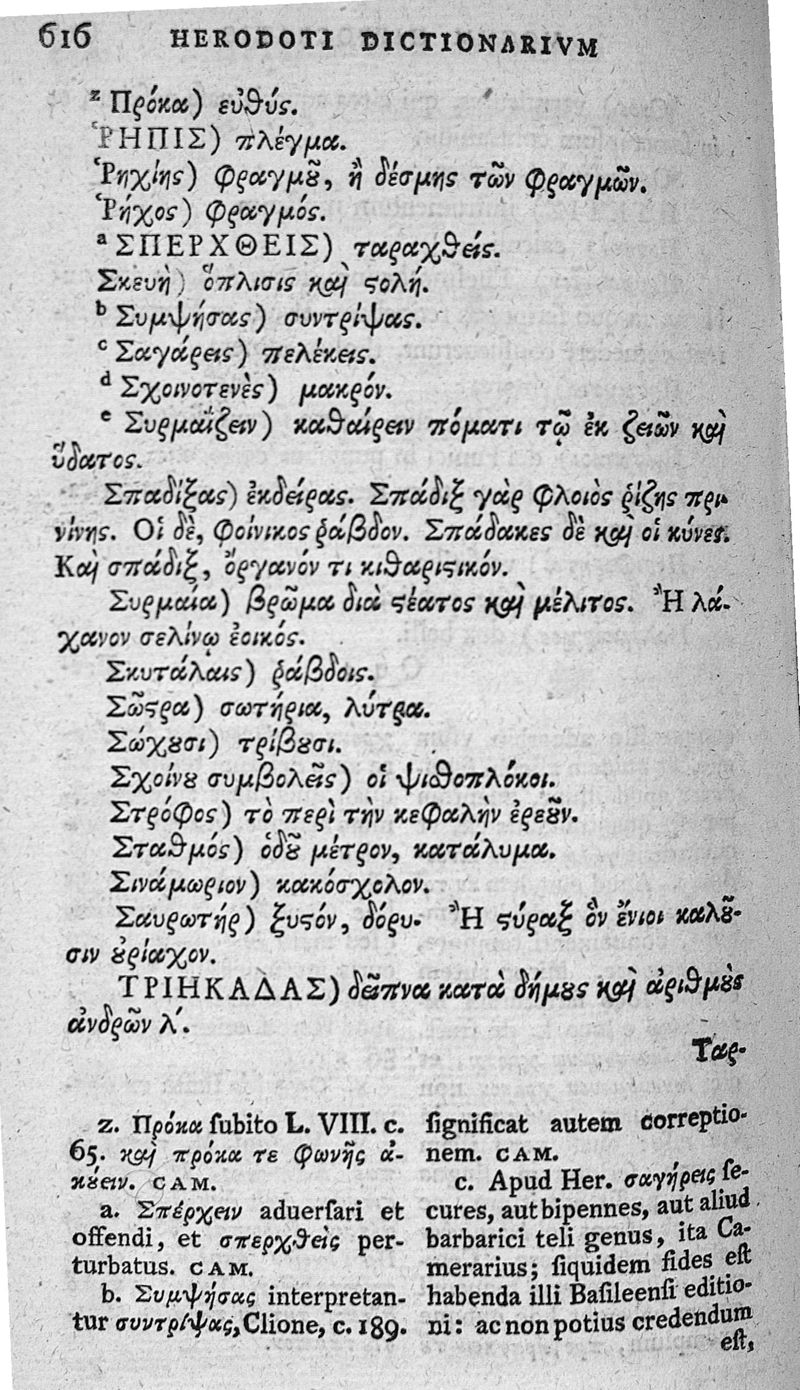 616 HERODOTI DICTIONARIVM
z Πρόκα) εὐθύς.
ῬΗΠΙΣ) πλέγμα.
Ῥηχίης) φραγμȣ͂, ἢ δέσμης τῶν φραγμῶν.
Ῥήχος) φραγμός.
a ΣΠΕΡΧΘΕΙΣ) ταραχθείς.
Σκευὴ) ὅπλισις καὶ ϛολή.
b Συμψήσας) συντρίψας.
c Σαγάρεις) πελέκεις.
d Σχοινοτενὲς) μακρόν.
e Συρμαΐζειν) καθαίρειν πόματι τῷ ἐκ ζειῶν καὶ
ὕδατος.
Σπαδίξας) ἐκδείρας. Σπάδιξ γὰρ φλοιὸς ῥίζης πρι-
νίνης. Οἱ δὲ, φοίνικος ῥάβδον. Σπάδακες δὲ καὶ οἱ κύνες.
Καὶ σπάδιξ, ὄργανόν τι κιθαριϛικόν.
Συρμαία) βρῶμα διὰ ϛέατος καὶ μέλιτος. Ἢ λά-
χανον σελίνῳ ἐοικός.
Σκυτάλαις) ῥάβδοις.
Σῶϛρα) σωτήρια, λύτρα.
Σώχȣσι) τρίβȣσι.
Σχοίνȣ συμβολεῖς) οἱ ψιθοπλόκοι.
Στρόφος) τὸ περὶ τὴν κεφαλὴν ἐρεȣ͂ν.
Σταθμός) ὁδȣ͂ μέτρον, κατάλυμα.
Σινάμωριον) κακόσχολον.
Σαυρωτήρ) ξυϛόν, δόρυ. Ἢ ϛύραξ ὃν ἔνιοι καλȣ͂-
σιν ȣ̓ρίαχον.
ΤΡΙΗΚΑΔΑΣ) δεῖπνα κατὰ δήμȣς καὶ ἀριθμȣ̀ς
ἀνδρῶν λʹ.
Ταρ-
z. Πρόκα ſubito L. VIII. c.
65. καὶ πρόκα τε φωνῆς ἀ-
κȣ́ειν. CAM.
a. Σπέρχειν aduerſari et
offendi, et σπερχθεὶς per-
turbatus. CAM.
b. Συμψήσας interpretan-
tur συντρίψας, Clione, c. 189.
ſignificat autem correptio-
nem. CAM.
c. Apud Her. σαγήρεις ſe-
cures, aut bipennes, aut aliud
barbarici teli genus, ita Ca-
merarius; ſiquidem fides eſt
habenda illi Baſileenſi editio-
ni: ac non potius credendum
eſt,